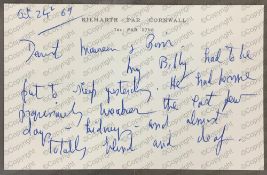 Oct 24th 69
KILMARTH PAR CORNWALL
TEL: PAR 2706
Dearest Maureen &
my Billy had to be
put to sleep yesterday. He had become
weaker the last few
days - kidney and almost
totally blind and deaf.